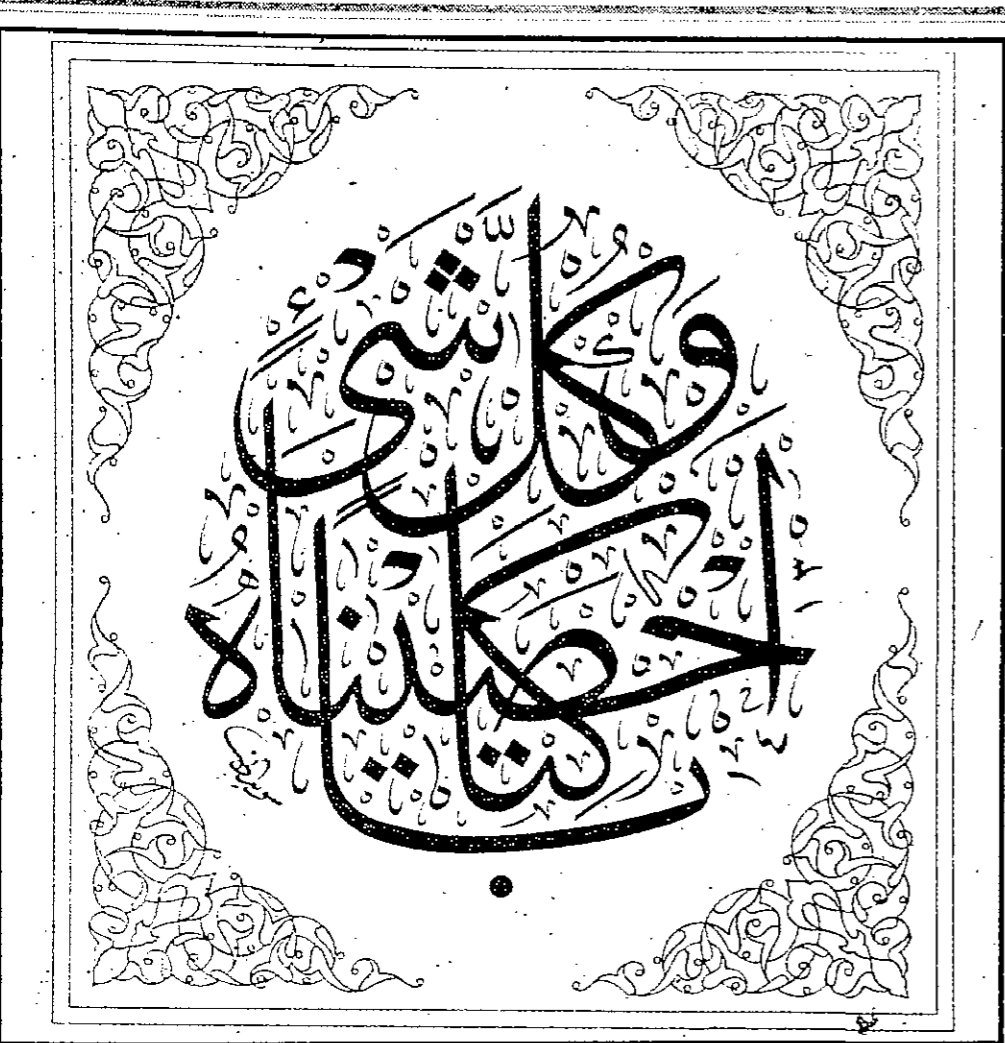 وَكُلَّ شَيْءٍ
أَحْصَيْنَاهُ
كِتَابًا